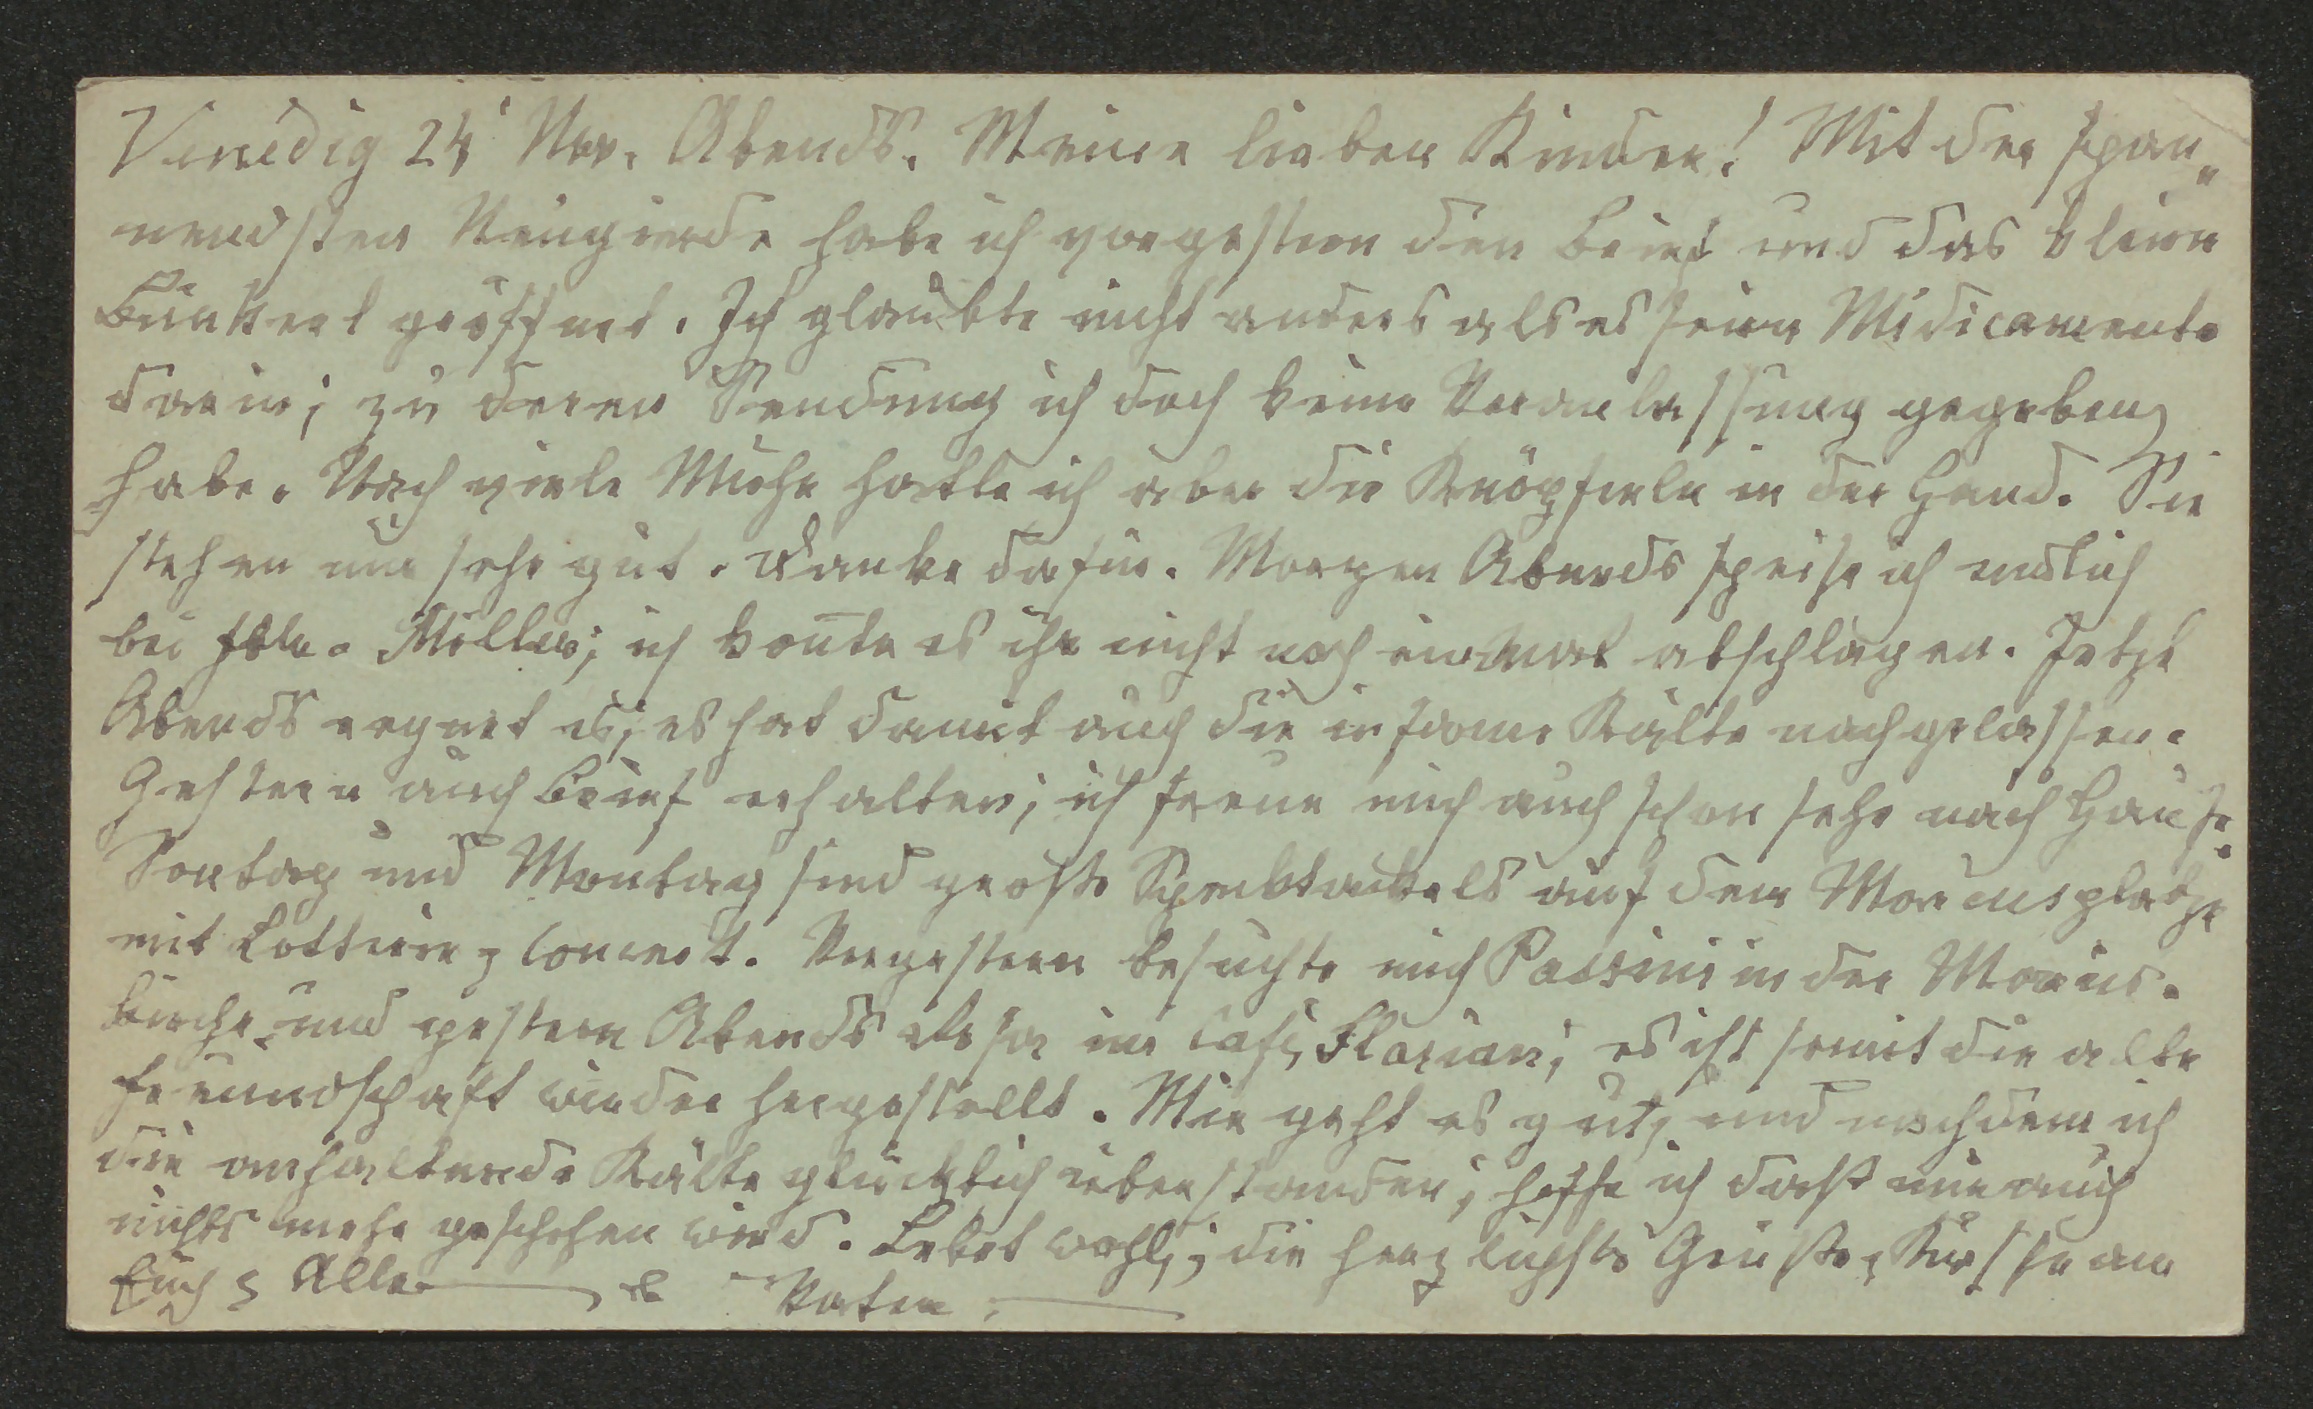 Venedig 24' Nov. Abends. Meine lieben Kinder! Mit der span„
nendsten Neugierde habe ich vorgestern den Brief und das kleine
Packert geöffnet. Ich glaubte nicht anders als es seien Medicamente
darin; zu deren Sendung ich doch keine Veranlassung gegeben
habe. Nach viele Mühe hatte ich aber die Knöpferln in der Hand. Sie
stehen mir sehr gut. Danke dafür. Morgen Abends speise ich endlich
bei Frln. Miller; ich kon̄te es ihr nicht noch einmal abschlagen. Jetzt
Abends regnet es; es hat damit auch die infame Kälte nachgelassen.
Gestern auch Brief erhalten; ich freue mich auch schon sehr nach Hause.
Sontag und Montag sind große Spektakels auf dem Marcusplatze
mit Lotterie & Concert. Vorgestern besuchte mich Passini in der Marcus.
kirche und gestern Abends im Café Florian; es ist somit die alte
Freundschaft wieder hergestellt. Mir geht es gut, und nachdem ich
die anhaltende Kälte glücklich überstanden; hoffe ich daß mir auch
nichts mehr geschehen wird. Lebet wohl; die herzlichste Grüße & Küsse an
Euch & Alle Vater.